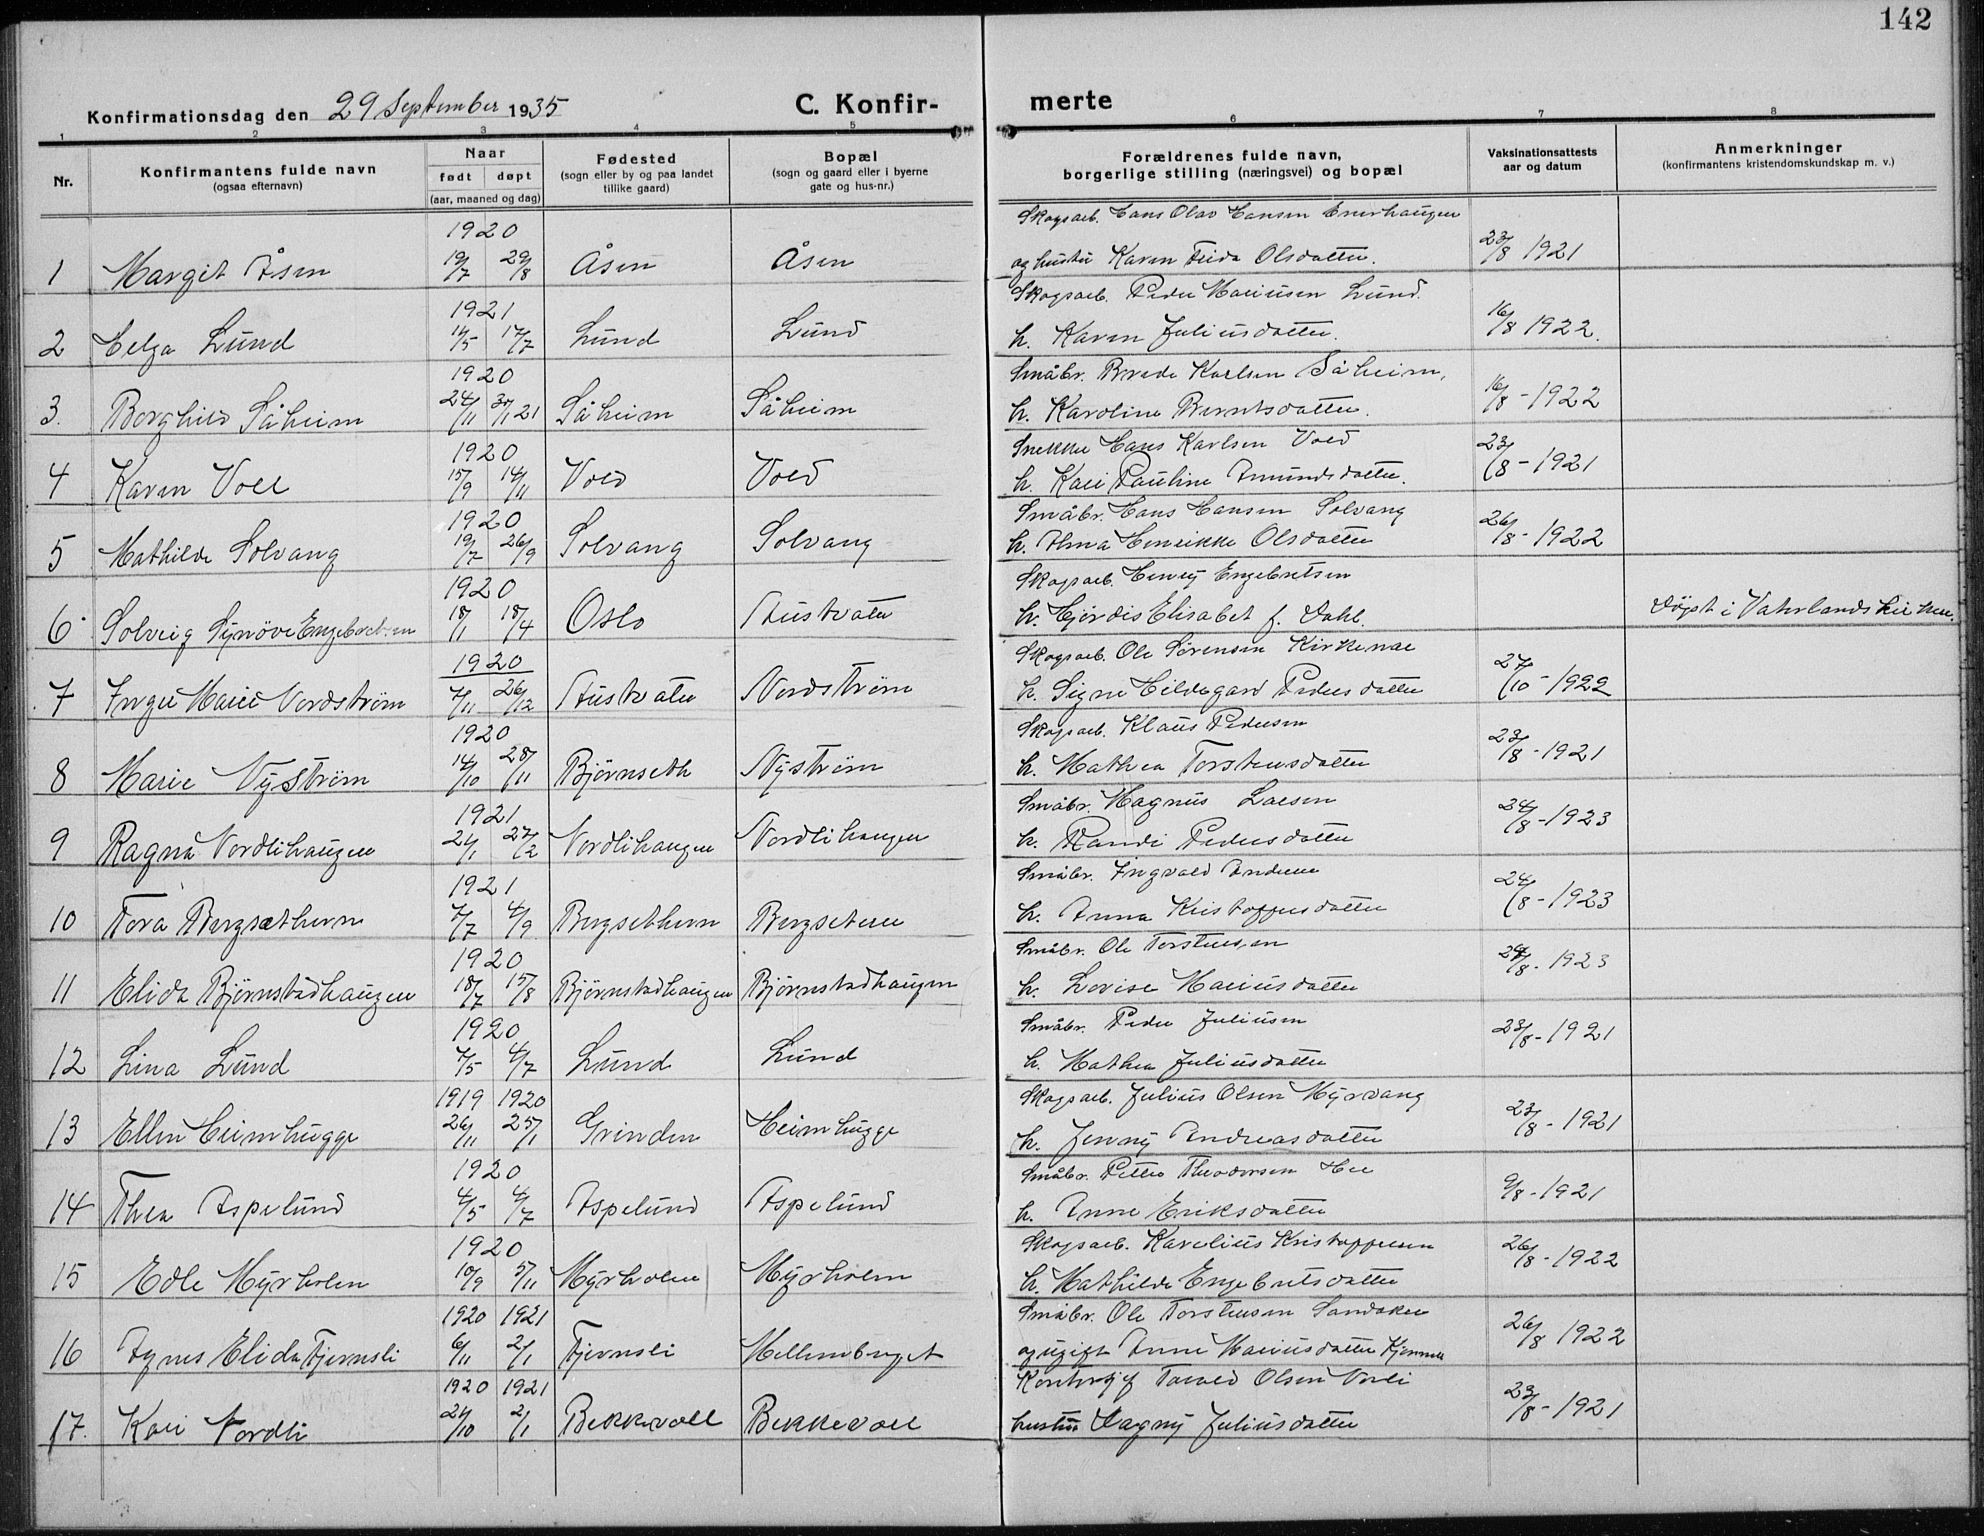 142
Konfirmationsdag den 29 September 1935
C. Konfir-
merte
1 2 3 4 5 6 7 8
Nr.
Konfirmantens fulde navn
(ogsaa efternavn)
Naar
født døpt
(aar, maaned og dag)
Fødested
(sogn eller by og paa landet
tillike gaard)
Bopæl
(sogn og gaard eller i byerne
gate og hus-nr.)
Forældrenes fulde navn,
borgerlige stilling (næringsvei) og bopæl
Vaksinationsattests
aar og datum
Anmerkninger
(konfirmantens kristendomskundskap m. v.)
1920 Skogsarb. Hans Olav Hansen Enerhaugen
1 Margit Åsen 19/7 29/8 Åsen Åsen og hustru Karen Frida Olsdatter. 23/8 1921
1921 Skogsarb. Peder Mariusen Lund.
2 Helga Lund 17/7 Lund Lund h. Karen Juliusdatter. 16/8 1922.
1920 Småbr. Brede Karlsen Såheim,
3. Borghild Såheim 24/11 30/1 21 Såheim Såheim h. Karoline Berntsdatter. 16/8 - 1922
1920 Snekker Hans Karlsen Vold
4 Karen Voll 15/9 14/11 Vold Vold h. Kari Pauline Amundsdatter. 23/8 - 1921
1920 Småbr. Hans Hansen Solvang
5 Mathilde Solvang 19/7 26/9 Solvang Solvang h. Alma Henrikke Olsdatter 26/8 - 1922
1920 Skogsarb. Henry Engebretsen
6 Solveig Synøve Engebretsen 18/1 18/4 Oslo Austvater h. Hjørdis Elisabet f. Dahl. Døpt i Vaterlands kirken.
1920 Skogsarb. Ole Sørensen Kirkenæ
7 Inger Marie Nordstrøm 7/11 26/12 Austvater Nordstrøm h. Signe Hildegard Pedersdatter 27/10 - 1922
1920 Skogsarb. Klaus Pedersen
8 Marie Nystrøm 14/10 28/11 Bjørnseth Nystrøm h. Mathea Torstensdatter 23/8 - 1921
1921 Småbr. Magnus Larsen
9 Ragna Nordlihaugen 24/1 27/2 Nordlihaugen Nordlihaugen h. Randi Pedersdatter 24/8 - 1923
1921 Småbr. Ingvald Andersen
10 Tora Bergsæthern 7/7 4/9 Bergsethern Bergseteren h. Anna Kristoffersdatter 24/8 - 1923
1920 Småbr. Ole Torstensen
11 Elida Bjørnstadhaugen 18/7 15/8 Bjørnstadhaugen Bjørnstadhaugen h. Lovise Mariusdatter 24/8 - 1923
1920 Småbr. Peder Juliusen
12 Lina Lund 7/5 4/7 Lund Lund h. Mathea Juliusdatter 23/8 - 1921
1919 1920 Skogsarb. Julius Olsen Myrvang
13 Ellen Heimhugge 26/11 25/1 Grinden Heimhugge h. Jenny Andreasdatter 23/8 - 1921
1920 Småbr. Petter Theodorsen
14 Thea Aspelund 4/5 4/7 Aspelund Aspelund h. Anne Eriksdatter 9/8 - 1921
1920 Skogsarb. Karelius Kristoffersen
15 Edle Myrholen 10/9 5/11 Myrholen Myrholen h. Mathilde Engebretsdatter 26/8 - 1922
1920 1921 Småbr. Ole Torstensen Sandaker
16 Agnes Elida Fjernsli 6/11 2/1 Fjernsli Mellembruget og ugift Anne Mariusdatter 26/8 1922
1920 1921 Torvald Olsen Norli
17. Kari Nordli 24/10 2/1 Bekkevoll Bekkevoll hustru Dagny Juliusdatter 23/8 - 1921